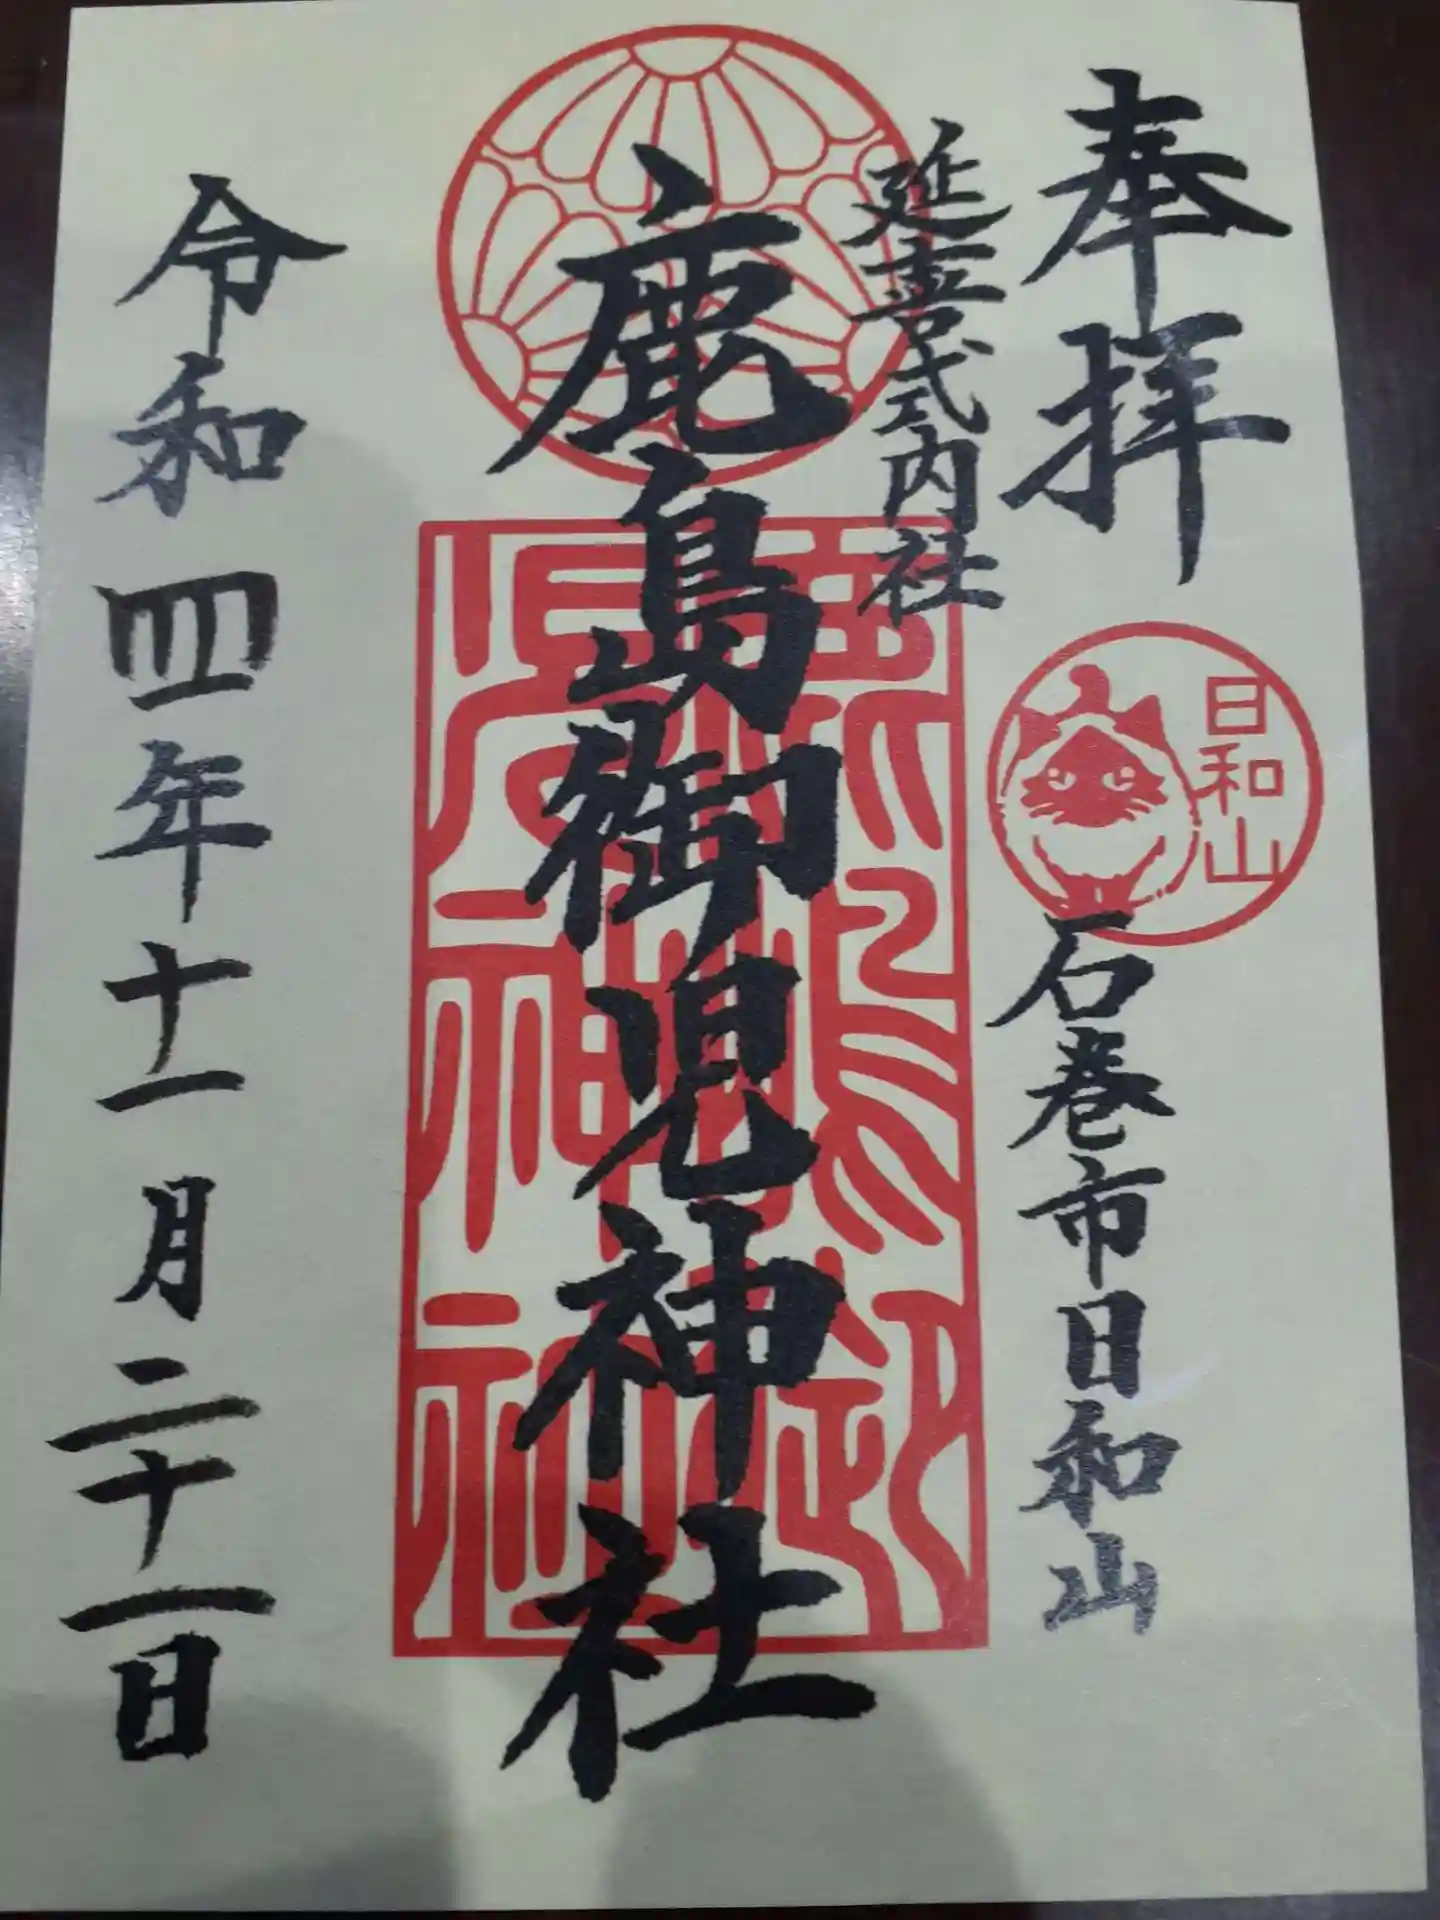 奉拝
日和山
石巻市日和山
延喜式内社
鹿島御児神社
令和四年十一月二十一日